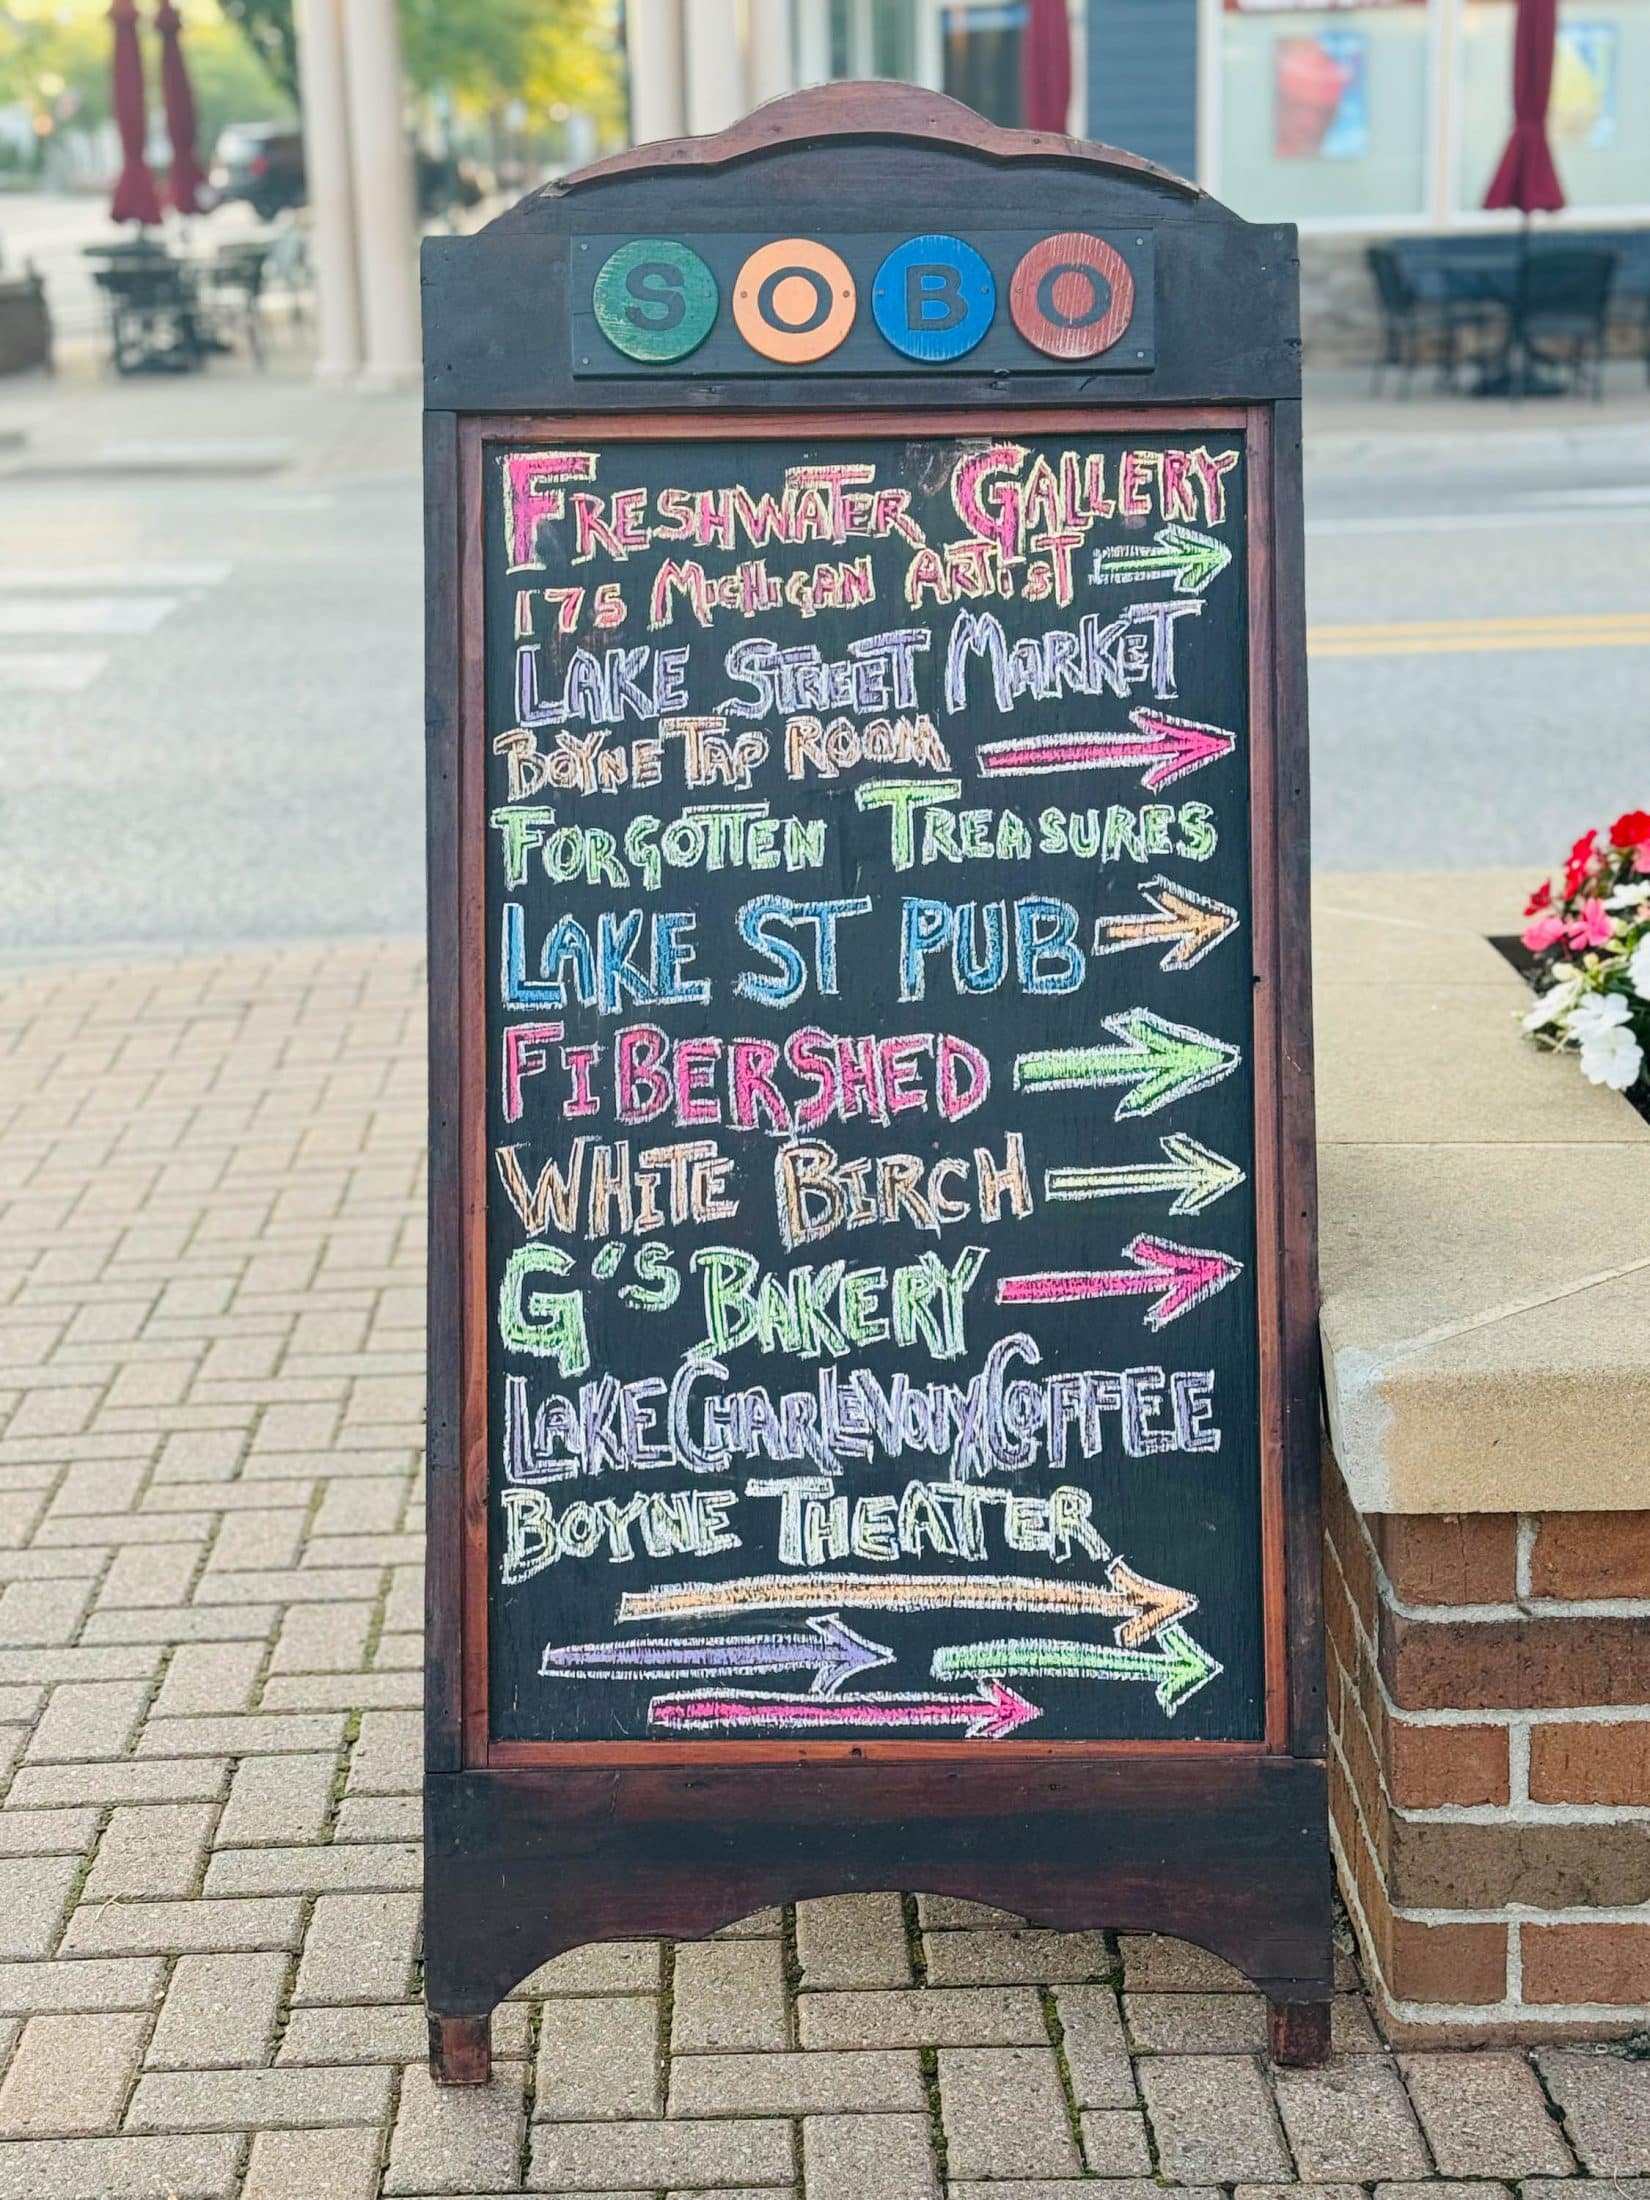 SOBO
FRESHWATER GALLERY
175 MICHIGAN ARTIST
LAKE STREET MARKET
BOYNE TAP ROOM
FORGOTTEN TREASURES
LAKE ST PUB
FIBERSHED
WHITE BIRCH
G'S BAKERY
LAKE CHARLEVOIX COFFEE
BOYNE THEATER